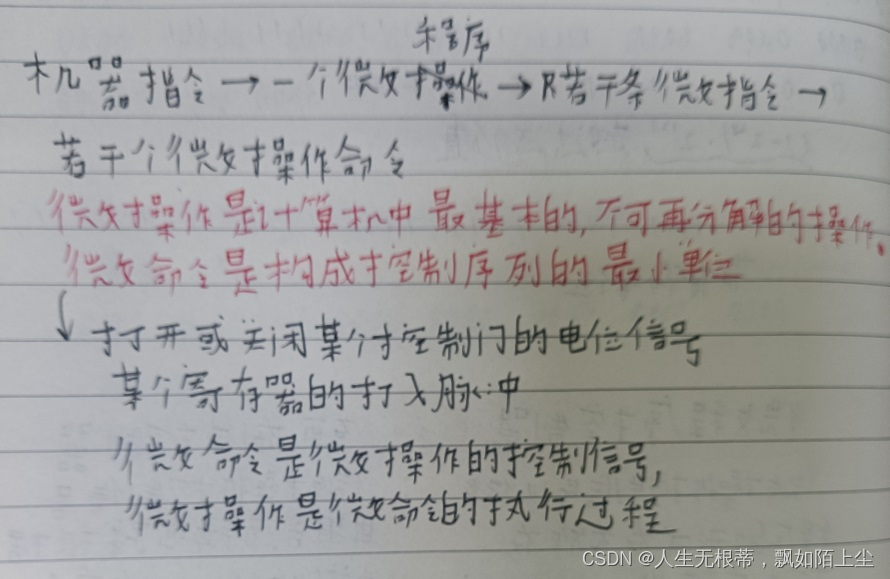 程序
机器指令→一个微操作→若干条微指令→
若干个微操作命令
微操作是计算机中最基本的,不可再分解的操作。
微命令是构成控制序列的最小单位
↓ 打开或关闭某个控制门的电位信号
某个寄存器的打入脉冲
微命令是微操作的控制信号,
微操作是微命令的执行过程
CSDN @人生无根蒂，飘如陌上尘